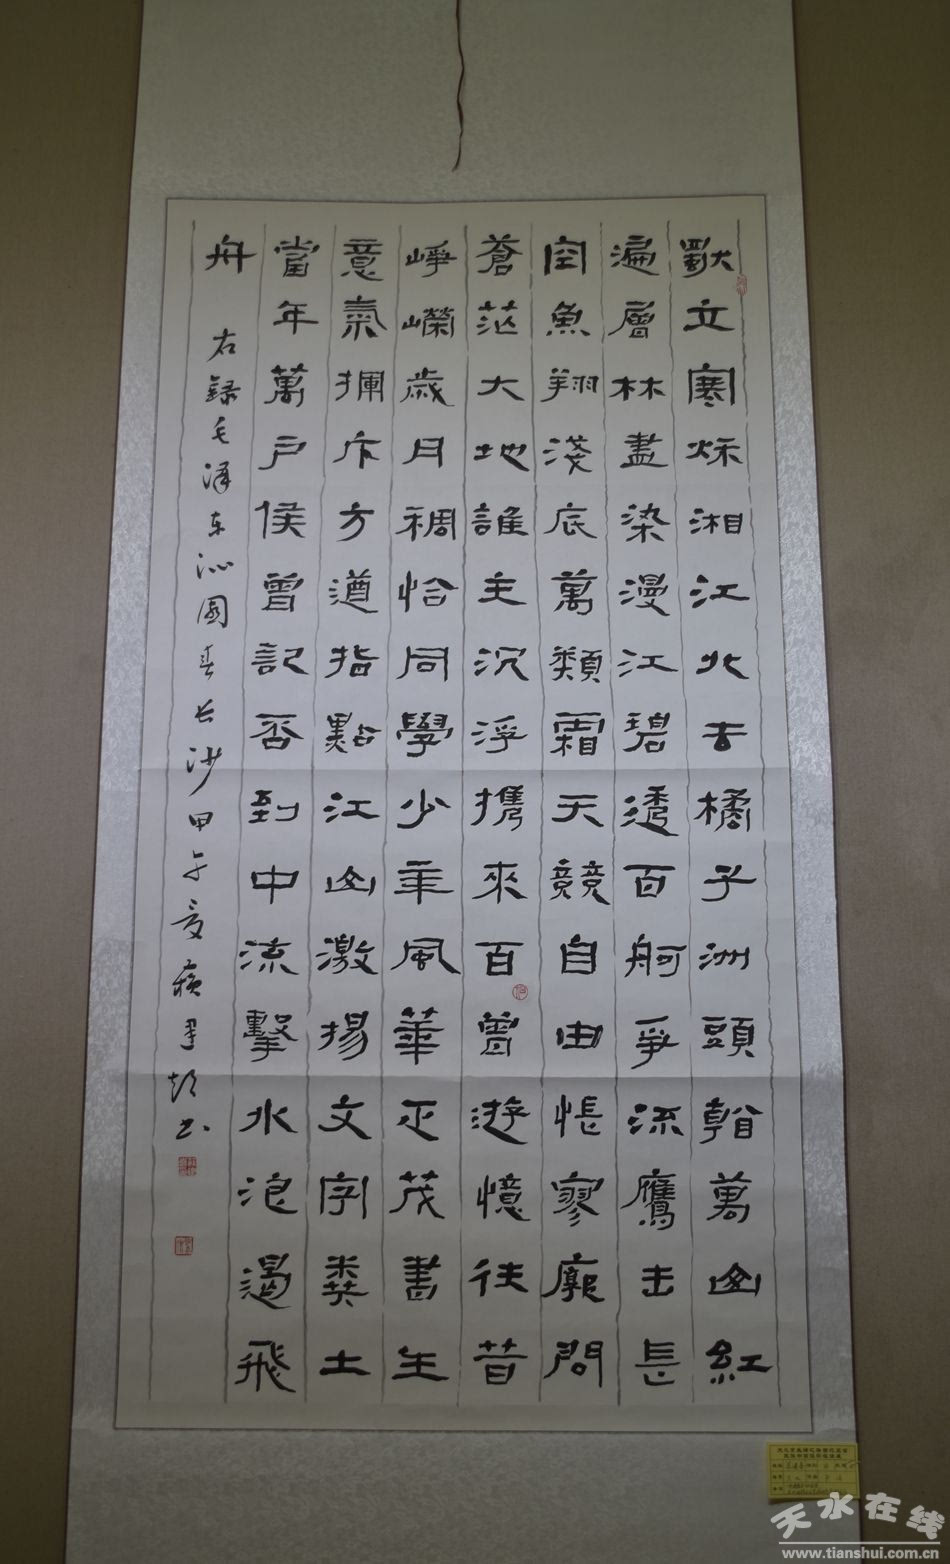 獨立寒秋湘江北去橘子洲頭看萬山紅
遍層林盡染漫江碧透百舸爭流鷹击長
空魚翔淺底萬類霜天競自由悵寥廓問
蒼茫大地誰主沉浮攜來百曾遊憶往昔
崢嶸歲月稠恰同學少年風華正茂書生
意氣揮斥方遒指點江山激揚文字糞土
當年萬戶侯曾記否到中流擊水浪遏飛
舟
右錄毛澤东沁園春长沙甲午夏书
天水在线
www.tianshui.com.cn